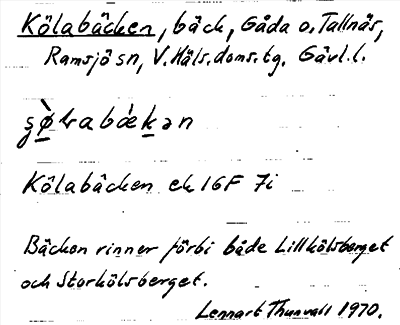 Kölabäcken, bäck, Gåda o. Tallnäs,
Ramsjö sn, V. Häls. doms. tg. Gävl. l.
Kölabäcken ek 16F 7i
Bäcken rinner förbi både Lillkölsberget
och Storkölsberget.
Lennart Thunvall 1970.